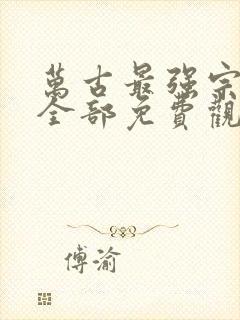 萬古最強宗
全部免費觀
傅渝